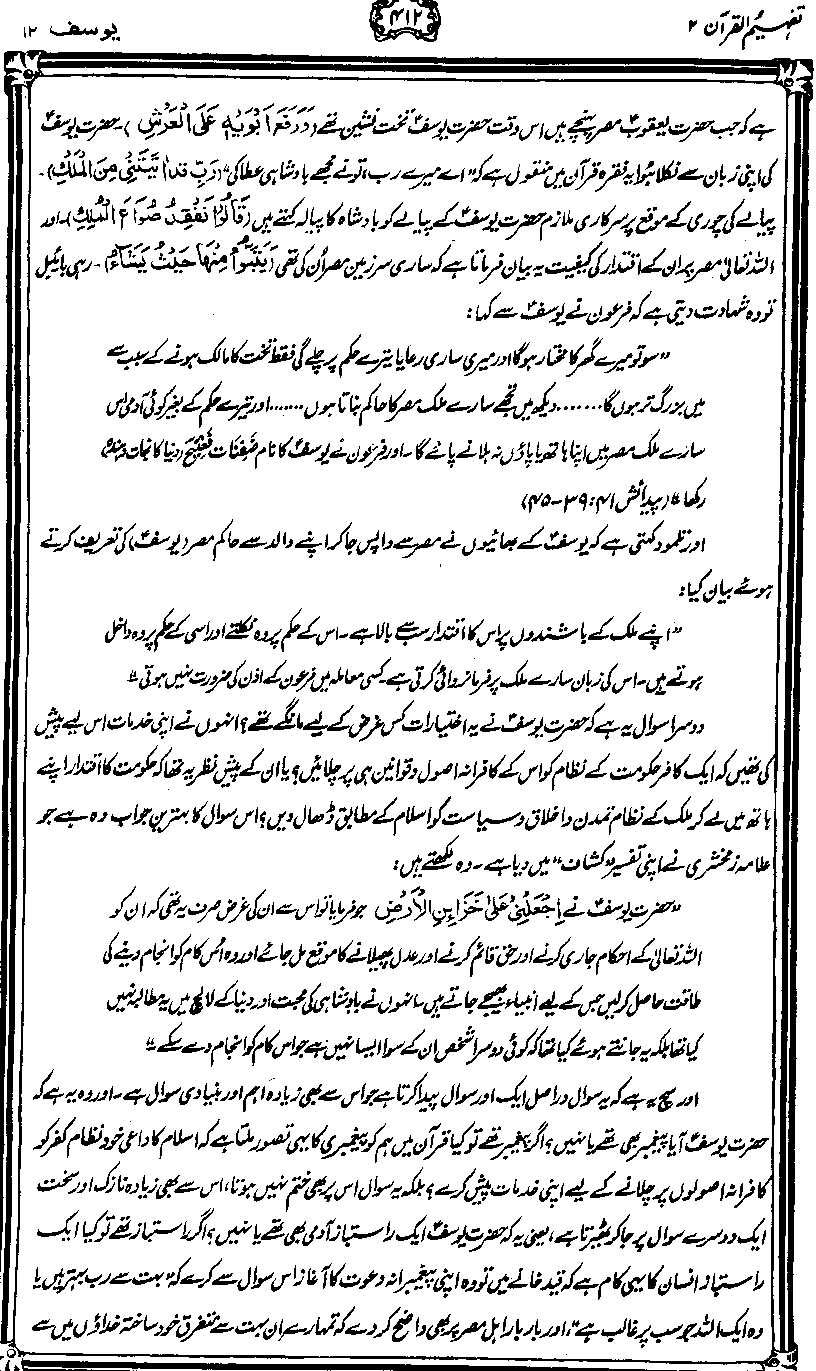 تفہیم القرآن ۲
۴۱۲
یوسف ۱۲
ہے کہ جب حضرت یعقوبؑ مصر پہنچے ہیں اس وقت حضرت یوسفؑ تخت نشین تھے (وَرَفَعَ اَبَوَيْهِ عَلَى الْعَرْشِ)۔ حضرت یوسفؑ
کی اپنی زبان سے نکلا ہوا یہ فقرہ قرآن میں منقول ہے کہ "اے میرے رب، تو نے مجھے بادشاہی عطا کی" (رَبِّ قَدْ اٰتَيْتَنِيْ مِنَ الْمُلْكِ)۔
پیالے کی چوری کے موقع پر سرکاری ملازم حضرت یوسفؑ کے پیالے کو بادشاہ کا پیالہ کہتے ہیں (قَالُوْا نَفْقِدُ صُوَاعَ الْمَلِكِ)۔ اور
اللہ تعالیٰ مصر پر ان کے اقتدار کی کیفیت یہ بیان فرماتا ہے کہ ساری سرزمین مصر اُن کی تھی (يَتَبَوَّاُ مِنْهَا حَيْثُ يَشَآءُ)۔ رہی بائیبل
تو وہ شہادت دیتی ہے کہ فرعون نے یوسفؑ سے کہا:
"سو تو میرے گھر کا مختار ہوگا اور میری ساری رعایا تیرے حکم پر چلے گی فقط تخت کا مالک ہونے کے سبب سے
میں بزرگ تر ہوں گا ....... دیکھ میں تجھے سارے ملک مصر کا حاکم بناتا ہوں ....... اور تیرے حکم کے بغیر کوئی آدمی اس
سارے ملک مصر میں اپنا ہاتھ یا پاؤں نہ ہلانے پائے گا۔ اور فرعون نے یوسفؑ کا نام ضفنات فعنیح (دنیا کا نجات دہندہ)
رکھا" (پیدائش ۴۱: ۳۹-۴۵)
اور تلمود کہتی ہے کہ یوسفؑ کے بھائیوں نے مصر سے واپس جا کر اپنے والد سے حاکم مصر (یوسفؑ) کی تعریف کرتے
ہوئے بیان کیا:
"اپنے ملک کے باشندوں پر اس کا اقتدار سب سے بالا ہے۔ اس کے حکم پر وہ نکلتے اور اسی کے حکم پر وہ داخل
ہوتے ہیں۔ اس کی زبان سارے ملک پر فرمانروائی کرتی ہے۔ کسی معاملہ میں فرعون کے اذن کی ضرورت نہیں ہوتی"
دوسرا سوال یہ ہے کہ حضرت یوسفؑ نے یہ اختیارات کس غرض کے لیے مانگے تھے؟ انہوں نے اپنی خدمات اس لیے پیش
کی تھیں کہ ایک کافر حکومت کے نظام کو اس کے کافرانہ اصول و قوانین ہی پر چلائیں؟ یا ان کے پیش نظر یہ تھا کہ حکومت کا اقتدار اپنے
ہاتھ میں لے کر ملک کے نظام تمدن و اخلاق و سیاست کو اسلام کے مطابق ڈھال دیں؟ اس سوال کا بہترین جواب وہ ہے جو
علامہ زمخشری نے اپنی تفسیر "کشاف" میں دیا ہے۔ وہ لکھتے ہیں:
"حضرت یوسفؑ نے اِجْعَلْنِيْ عَلٰى خَزَآئِنِ الْاَرْضِ جو فرمایا تو اس سے ان کی غرض صرف یہ تھی کہ ان کو
اللہ تعالیٰ کے احکام جاری کرنے اور حق قائم کرنے اور عدل پھیلانے کا موقع مل جائے اور وہ اُس کام کو انجام دینے کی
طاقت حاصل کرلیں جس کے لیے انبیاء بھیجے جاتے ہیں۔ انہوں نے بادشاہی کی محبت اور دنیا کے لالچ میں یہ مطالبہ نہیں
کیا تھا بلکہ یہ جانتے ہوئے کیا تھا کہ کوئی دوسرا شخص ان کے سوا ایسا نہیں ہے جو اس کام کو انجام دے سکے"
اور سچ یہ ہے کہ یہ سوال دراصل ایک اور سوال پیدا کرتا ہے جو اس سے بھی زیادہ اہم اور بنیادی سوال ہے۔ اور وہ یہ ہے کہ
حضرت یوسفؑ آیا پیغمبر بھی تھے یا نہیں؟ اگر پیغمبر تھے تو کیا قرآن میں ہم کو پیغمبری کا یہی تصور ملتا ہے کہ اسلام کا داعی خود نظام کفر کو
کافرانہ اصولوں پر چلانے کے لیے اپنی خدمات پیش کرے؟ بلکہ یہ سوال اس پر بھی ختم نہیں ہوتا، اس سے بھی زیادہ نازک اور سخت
ایک دوسرے سوال پر جا کر ٹھیرتا ہے، یعنی یہ کہ حضرت یوسفؑ ایک راستباز آدمی بھی تھے یا نہیں؟ اگر راستباز تھے تو کیا ایک
راستباز انسان کا یہی کام ہے کہ قید خانے میں تو وہ اپنی پیغمبرانہ دعوت کا آغاز اس سوال سے کرے کہ "بہت سے رب بہتر ہیں یا
وہ ایک اللہ جو سب پر غالب ہے"، اور بار بار اہل مصر پر بھی واضح کردے کہ تمہارے ان بہت سے متفرق خود ساختہ خداؤں میں سے